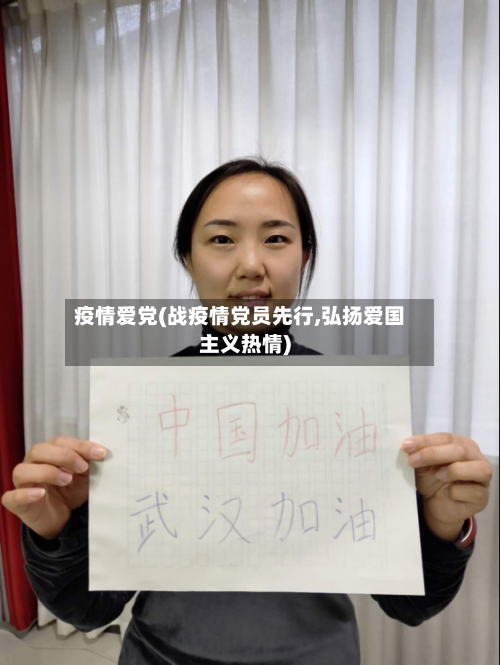 疫情爱党(战疫情党员先行,弘扬爱国
主义热情)
中国加油
武汉加油